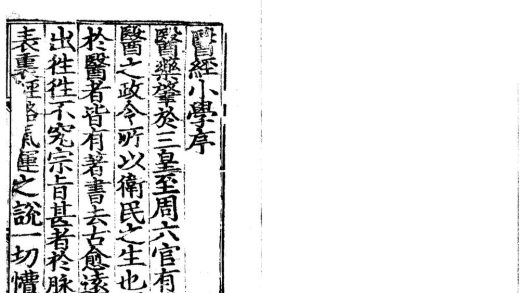 醫經小學序
醫藥肇於三皇至周六官有
醫之政令所以衛民之生也
於醫者皆有著書去古愈遠
出徃徃不究宗旨甚者於脉
表裏經絡氣運之說一切懵